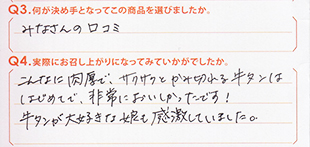 Q3.何が決め手となってこの商品を選びましたか。
みなさんの口コミ
Q4.実際にお召し上がりになってみていかがでしたか。
こんなに肉厚で、サクサクとかみ切れる牛タンは
はじめてで、非常においしかったです!
牛タンが大好きな娘も感激していました。